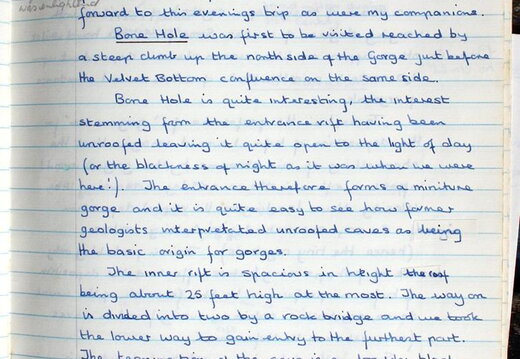 was enlightened
forward to this evenings trip as were my companions.
Bone Hole was first to be visited reached by
a steep climb up the north side of the Gorge just before
the Velvet Bottom confluence on the same side.
Bone Hole is quite interesting, the interest
stemming from the entrance rift having been
unroofed leaving it quite open to the light of day
(or the blackness of night as it was when we were
here!). The entrance therefore forms a miniture
gorge and it is quite easy to see how former
geologists interpretated unroofed caves as being
the basic origin for gorges.
The inner rift is spacious in height the roof
being about 25 feet high at the most. The way on
is divided into two by a rock bridge and we took
the lower way to gain entry to the furthest part.
The of the cave is a